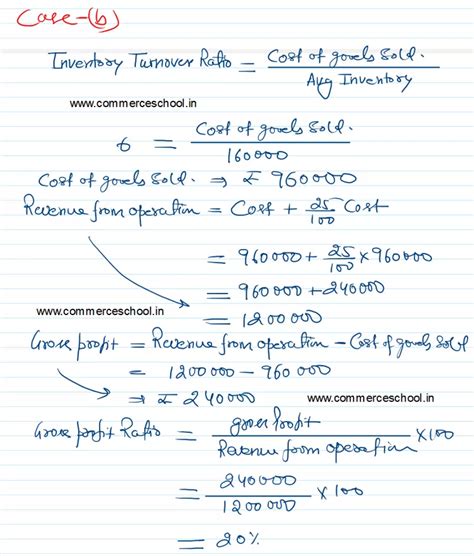 Case-(b)
Inventory Turnover Ratio = Cost of goods Sold.
Avg Inventory
www.commerceschool.in
6 = Cost of goods Sold.
160000
Cost of goods Sold. ⇒ ₹ 960000
Revenue from operation = Cost + 25/100 Cost
= 960000 + 25/100 × 960000
= 960000 + 240000
www.commerceschool.in
= 1200000
Gross profit = Revenue from operation - Cost of goods Sold
= 1200000 - 960000
⇒ ₹ 240000
www.commerceschool.in
Gross profit Ratio = gross profit × 100
Revenue from operation
= 240000 × 100
1200000
= 20%